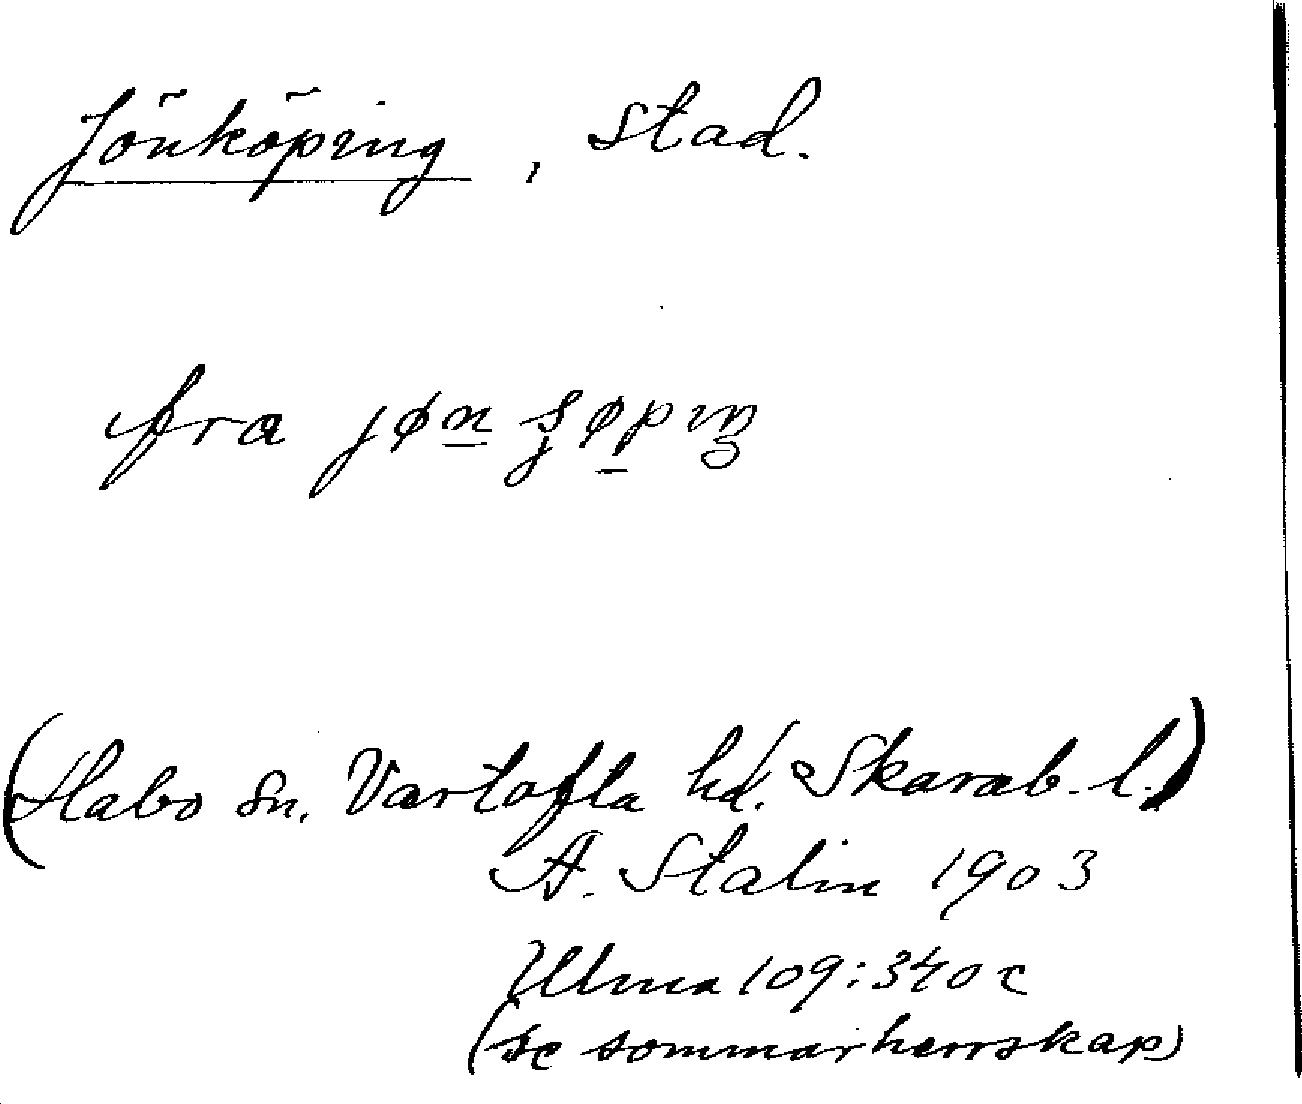 Jönköping, stad.
fra jøn̲ ʂø̲pıŋ
(Habo sn. Vartofta hd. Skarab. l.)
A. Stalin 1903
Ulma 109:340 c
(se sommarherrskap)